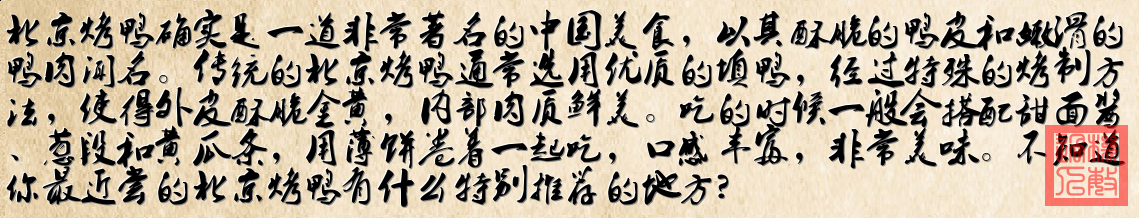 北京烤鸭确实是一道非常著名的中国美食，以其酥脆的鸭皮和嫩滑的
鸭肉闻名。传统的北京烤鸭通常选用优质的填鸭，经过特殊的烤制方
法，使得外皮酥脆金黄，内部肉质鲜美。吃的时候一般会搭配甜面酱
、葱段和黄瓜条，用薄饼卷着一起吃，口感丰富，非常美味。不知道
你最近尝的北京烤鸭有什么特别推荐的地方？